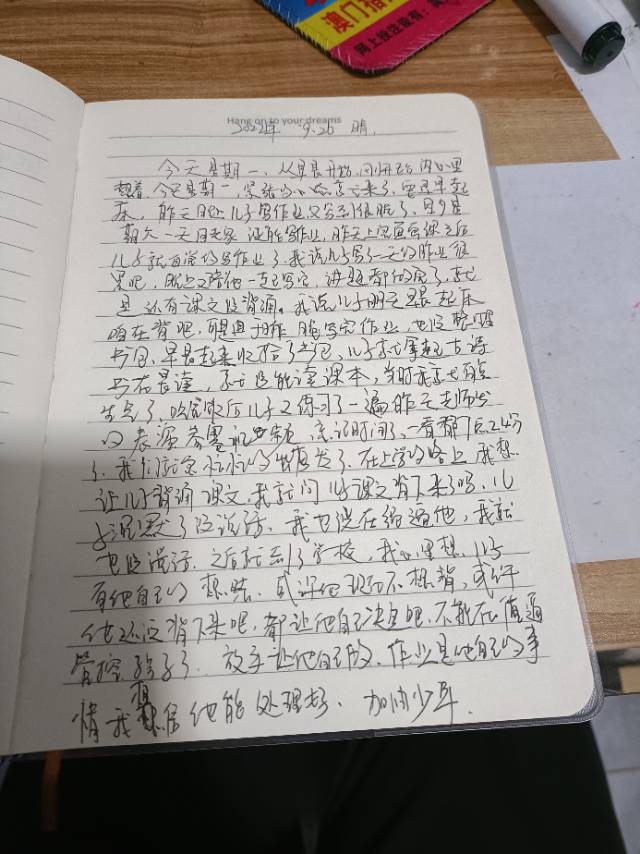 澳门
网上投注设有:
Hang on to your dreams
2022年 9.26 晴.
今天星期一,从早晨开始,闹铃 内心里
想着,今天星期一, 来了,
床,昨天晚上儿子写作业又写到很晚了,
期六一天回老家 没能写作业,昨天上完 课之后
儿子就自觉的写作业了,我说儿子写了一天的作业很
累吧,晚上又陪他一直写完,讲题都 完了,就
是还有课文没背诵。我说儿子明天早晨起床
咱在背吧,可是由于昨晚写完作业,也没整理
书包,早晨起来收拾了书包,儿子就拿起古诗
书在晨读,就没能读课本,当时我就有点
生气了,吃完饭后儿子又练习了一遍昨天老师发
的表演 忘记时间了,一看都7点24分
了,我们就急忙忙的出发了,在上学的路上,我想
让儿子背诵课文,我就问儿子课文背下来了吗,儿
子沉默了没说话,我也没在给逼他,我就
也没说话,之后就到了学校,我心里想,儿子
有他自己的想法,或许他现在不想背,或许
他还没背下来呢,都让他自己决定吧,不能在值逼
管控孩子了,放手让他自己做,作业是他自己的事
情我相信他能处理好、加油少年.